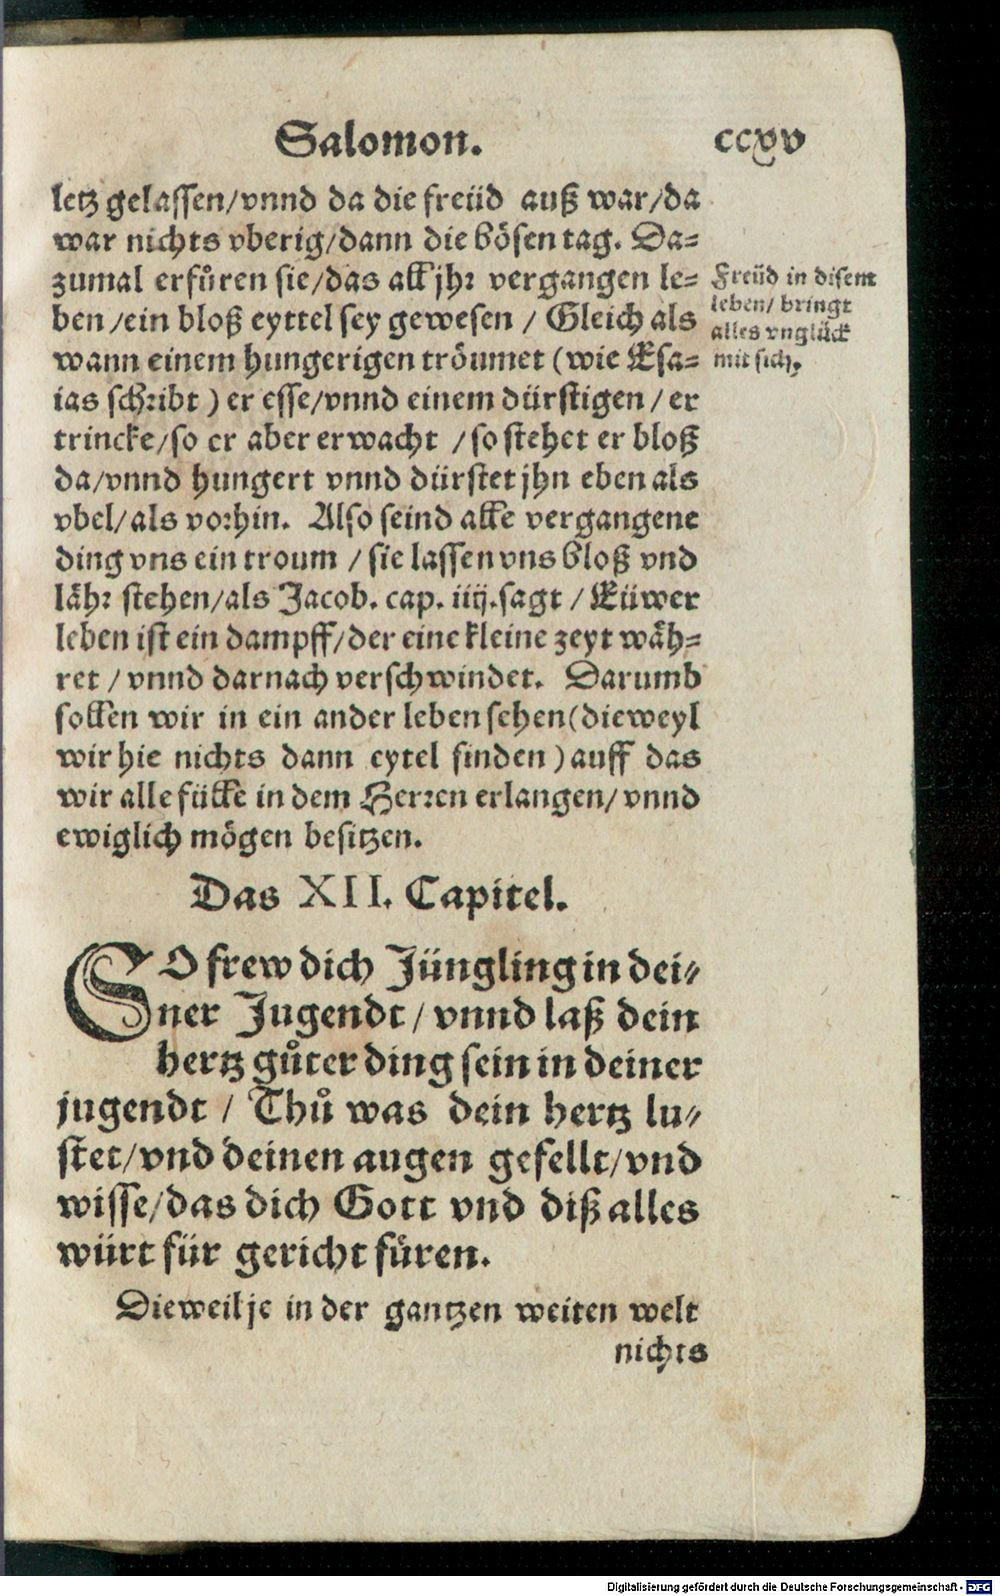 Salomon. ccxv
letz gelassen/vnnd da die freüd auß war/da
war nichts vberig/dann die bösen tag. Da-
zumal erfůren sie/das all jhr vergangen le-
ben/ein bloß eyttel sey gewesen / Gleich als
wann einem hungerigen tröumet (wie Esa-
ias schribt) er esse/vnnd einem dürstigen/er
trincke/so er aber erwacht /so stehet er bloß
da/vnnd hungert vnnd dürstet jhn eben als
vbel/als vorhin. Also seind alle vergangene
ding vns ein troum / sie lassen vns bloß vnd
lähr stehen/als Jacob. cap. iiij. sagt / Eüwer
leben ist ein dampff/der eine kleine zeyt wäh-
ret / vnnd darnach verschwindet. Darumb
sollen wir in ein ander leben sehen(dieweyl
wir hie nichts dann eytel finden) auff das
wir alle fülle in dem Herren erlangen/vnnd
ewiglich mögen besitzen.
Freüd in disem
leben/ bringt
alles vnglück
mit sich.
Das XII. Capitel.
SO frew dich Jüngling in dei-
ner Jugendt / vnnd laß dein
hertz gůter ding sein in deiner
jugendt / Thů was dein hertz lu-
stet/vnd deinen augen gefellt/vnd
wisse/das dich Gott vnd diß alles
würt für gericht füren.
Dieweil je in der gantzen weiten welt
nichts
Digitalisierung gefördert durch die Deutsche Forschungsgemeinschaft - DFG